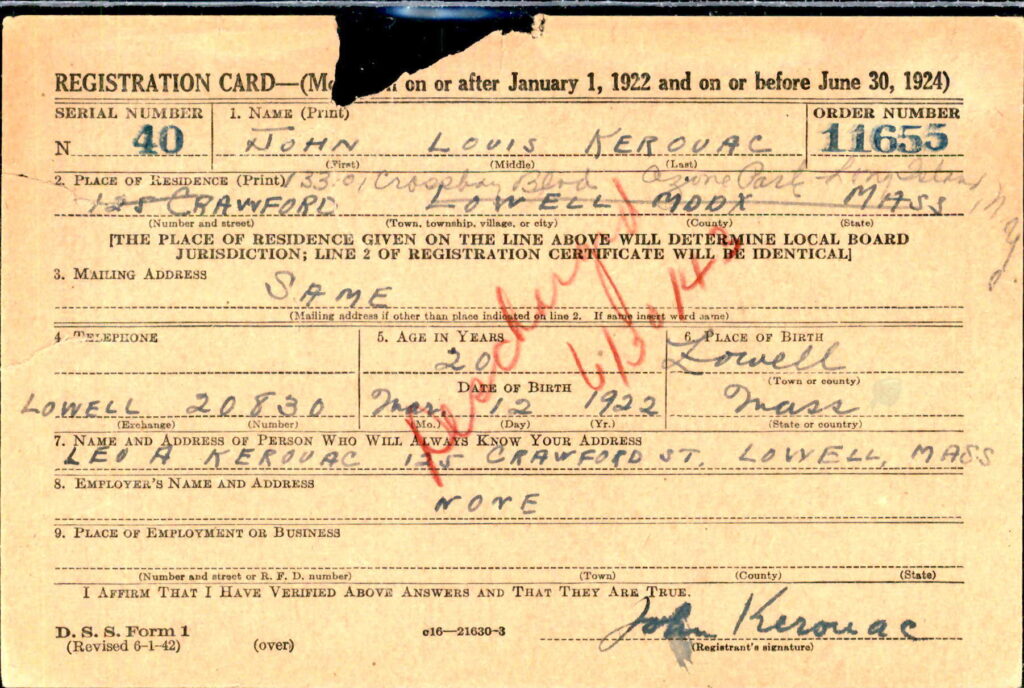 REGISTRATION CARD—(M on or after January 1, 1922 and on or before June 30, 1924)
SERIAL NUMBER 1. NAME (Print) ORDER NUMBER
N 40 JOHN LOUIS KEROUAC 11655
(First) (Middle) (Last)
2. PLACE OF RESIDENCE (Print) 133-01 Crossbay Blvd Ozone Park Long Island N.Y.
125 CRAWFORD LOWELL MDDX MASS
(Number and street) (Town, township, village, or city) (County) (State)
[THE PLACE OF RESIDENCE GIVEN ON THE LINE ABOVE WILL DETERMINE LOCAL BOARD
JURISDICTION; LINE 2 OF REGISTRATION CERTIFICATE WILL BE IDENTICAL]
3. MAILING ADDRESS
SAME
(Mailing address if other than place indicated on line 2. If same insert word same)
4. TELEPHONE 5. AGE IN YEARS 6. PLACE OF BIRTH
20 Lowell
(Town or county)
DATE OF BIRTH
LOWELL 20830 Mar. 12 1922 Mass
(Exchange) (Number) (Mo.) (Day) (Yr.) (State or country)
7. NAME AND ADDRESS OF PERSON WHO WILL ALWAYS KNOW YOUR ADDRESS
LEO A KEROUAC 125 CRAWFORD ST. LOWELL, MASS
8. EMPLOYER'S NAME AND ADDRESS
NONE
9. PLACE OF EMPLOYMENT OR BUSINESS
(Number and street or R. F. D. number) (Town) (County) (State)
I AFFIRM THAT I HAVE VERIFIED ABOVE ANSWERS AND THAT THEY ARE TRUE.
John Kerouac
D. S. S. Form 1 c16—21630-3
(Revised 6-1-42) (over) (Registrant's signature)